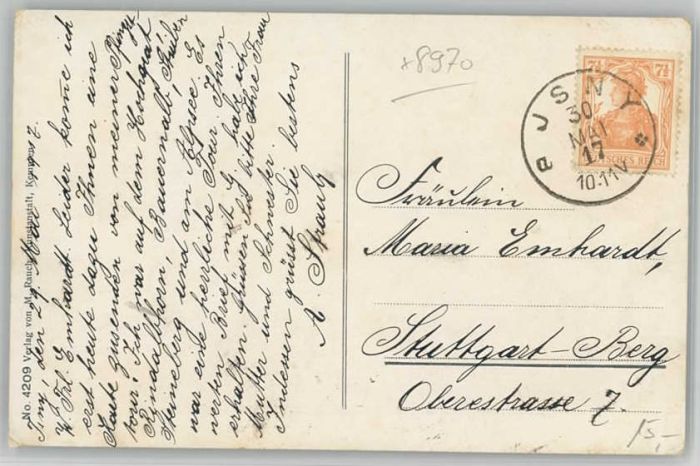 No. 4209 Verlag von M. Rauch, Kunstanstalt, Kempten
Isny, den 29. Mai 1917.
W. Frl. Emhardt. Leider kome ich
erst heute dazu Ihnen eine
Karte zusenden von meiner Pfingst
tour! Ich war auf dem Hochgrat
Rindalphorn, Bauernalb, Stuiben
Steineberg und am Alpsee. Es
war eine herrliche Tour. Ihren
werten Brief mit G. hab ich
erhalten. Grüssen Sie bitte Ihre Frau
Mutter und Schwester.
Indessen grüsst Sie bestens
A. Straub
x8970
7½ 7½
DEUTSCHES REICH
JSNY
30
MAI
17
10-11V.
Fräulein
Maria Emhardt,
Stuttgart-Berg
Oberestrasse 7.
15,-